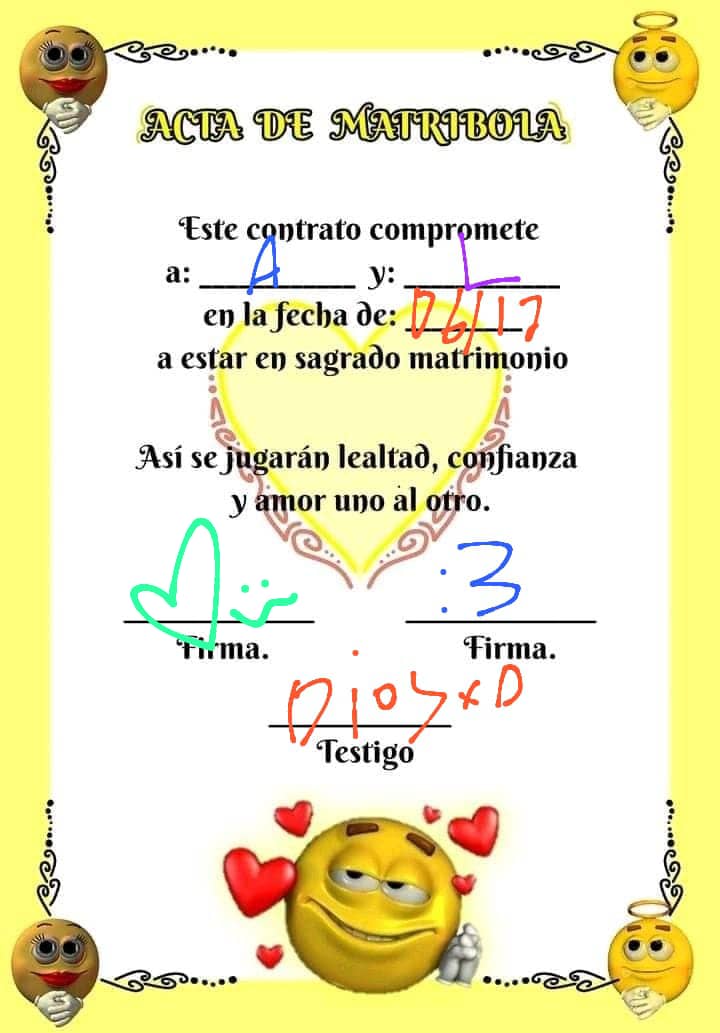 ACTA DE MATRIBOLA
Este contrato compromete
a: A y: L
en la fecha de: 06/17
a estar en sagrado matrimonio
Así se jugarán lealtad, confianza
y amor uno al otro.
:3
Firma. Firma.
Dios xD
Testigo